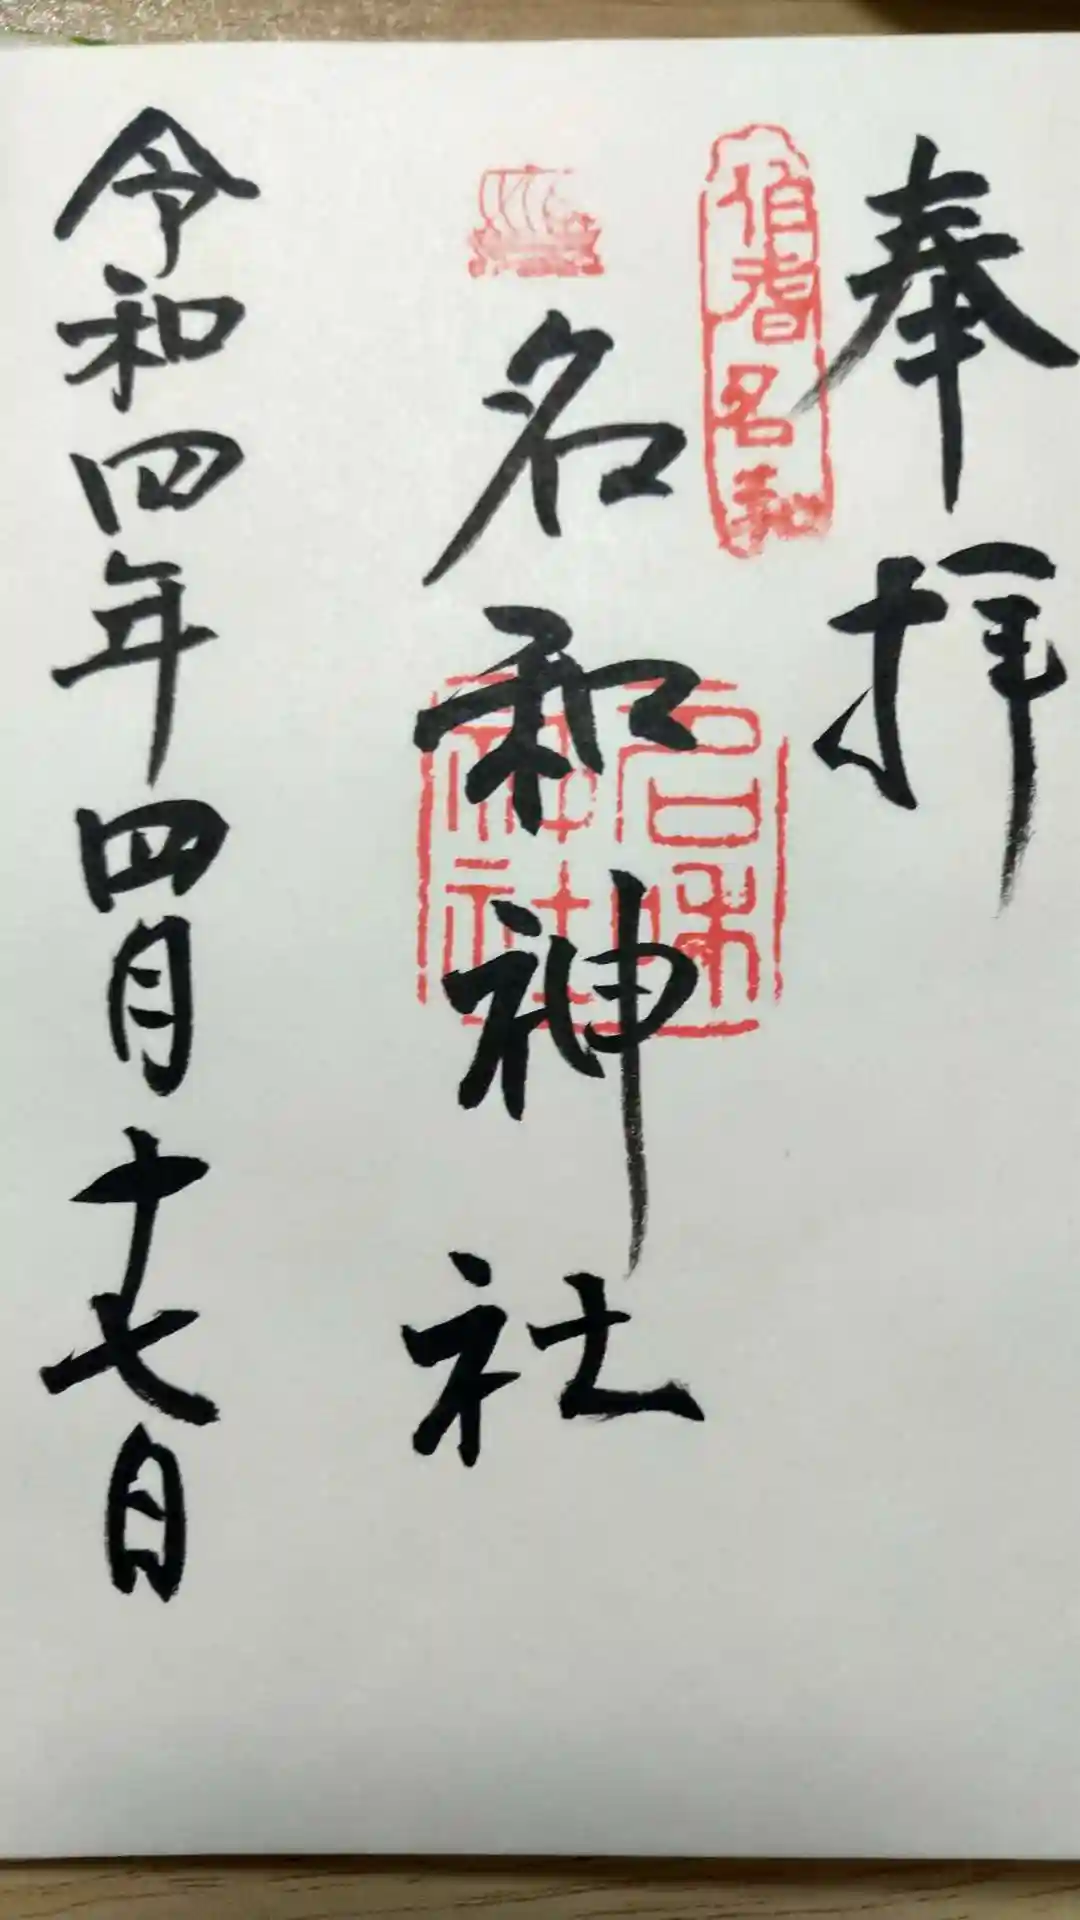 奉拝
伯耆名和
名和神社
名和神社
令和四年四月十七日